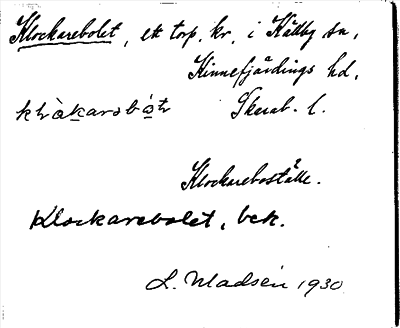 Klockarebolet, ett torp, kr. i Källby sn,
Kinnefjärdings hd,
Skarab. l.
Klockareboställe.
Klockarebolet, bek.
L. Madsén 1930